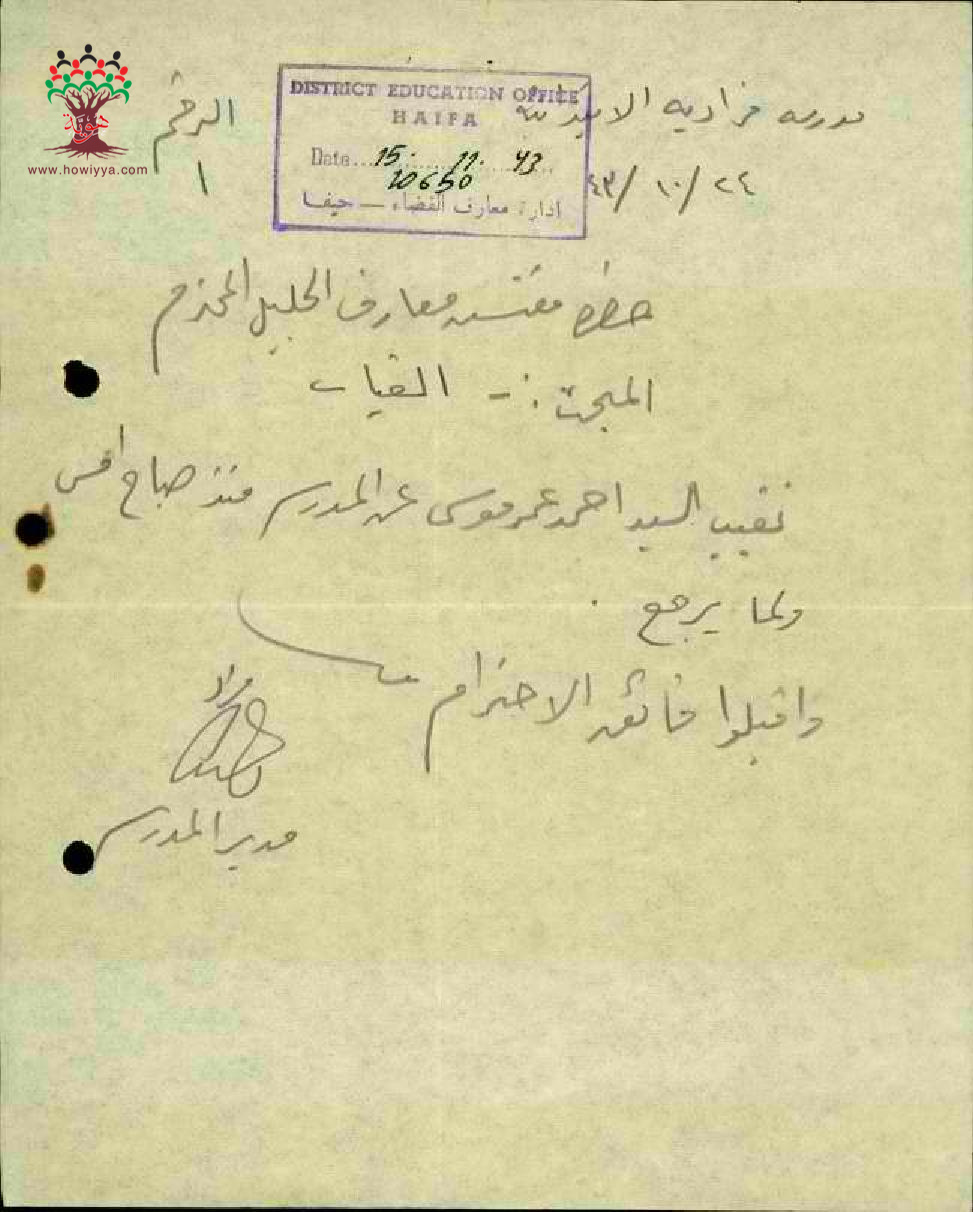 مدرسة فراديه الاميرية
الرقم
٢٤/١٠/٤٣
١
DISTRICT EDUCATION OFFICE
HAIFA
Date... 15. 11. 43
10650
ادارة معارف القضاء — حيفا
هوية
www.howiyya.com
حضرة مفتش معارف الجليل المحترم
المبحث :- الغياب
تغيب السيد احمد عمر موسى عن المدرسة منذ صباح امس
ولما يرجع .
واقبلوا فائق الاحترام
مدير المدرسة